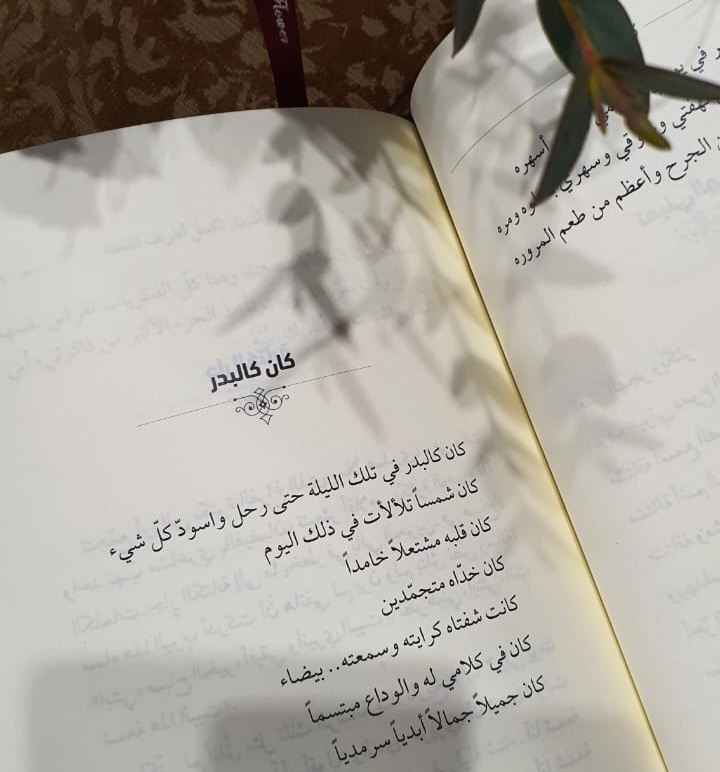 Flower
في
أسهره
وسهري
ومره
الجرح وأعظم من طعم المروره
كان كالبدر
كان كالبدر في تلك الليلة حتى رحل واسودّ كلّ شيء
كان شمساً تلألأت في ذلك اليوم
كان قلبه مشتعلاً خامداً
كان خدّاه متجمّدين
كانت شفتاه كرايته وسمعته.. بيضاء
كان في كلامي له والوداع مبتسماً
كان جميلاً جمالاً أبدياً سرمدياً